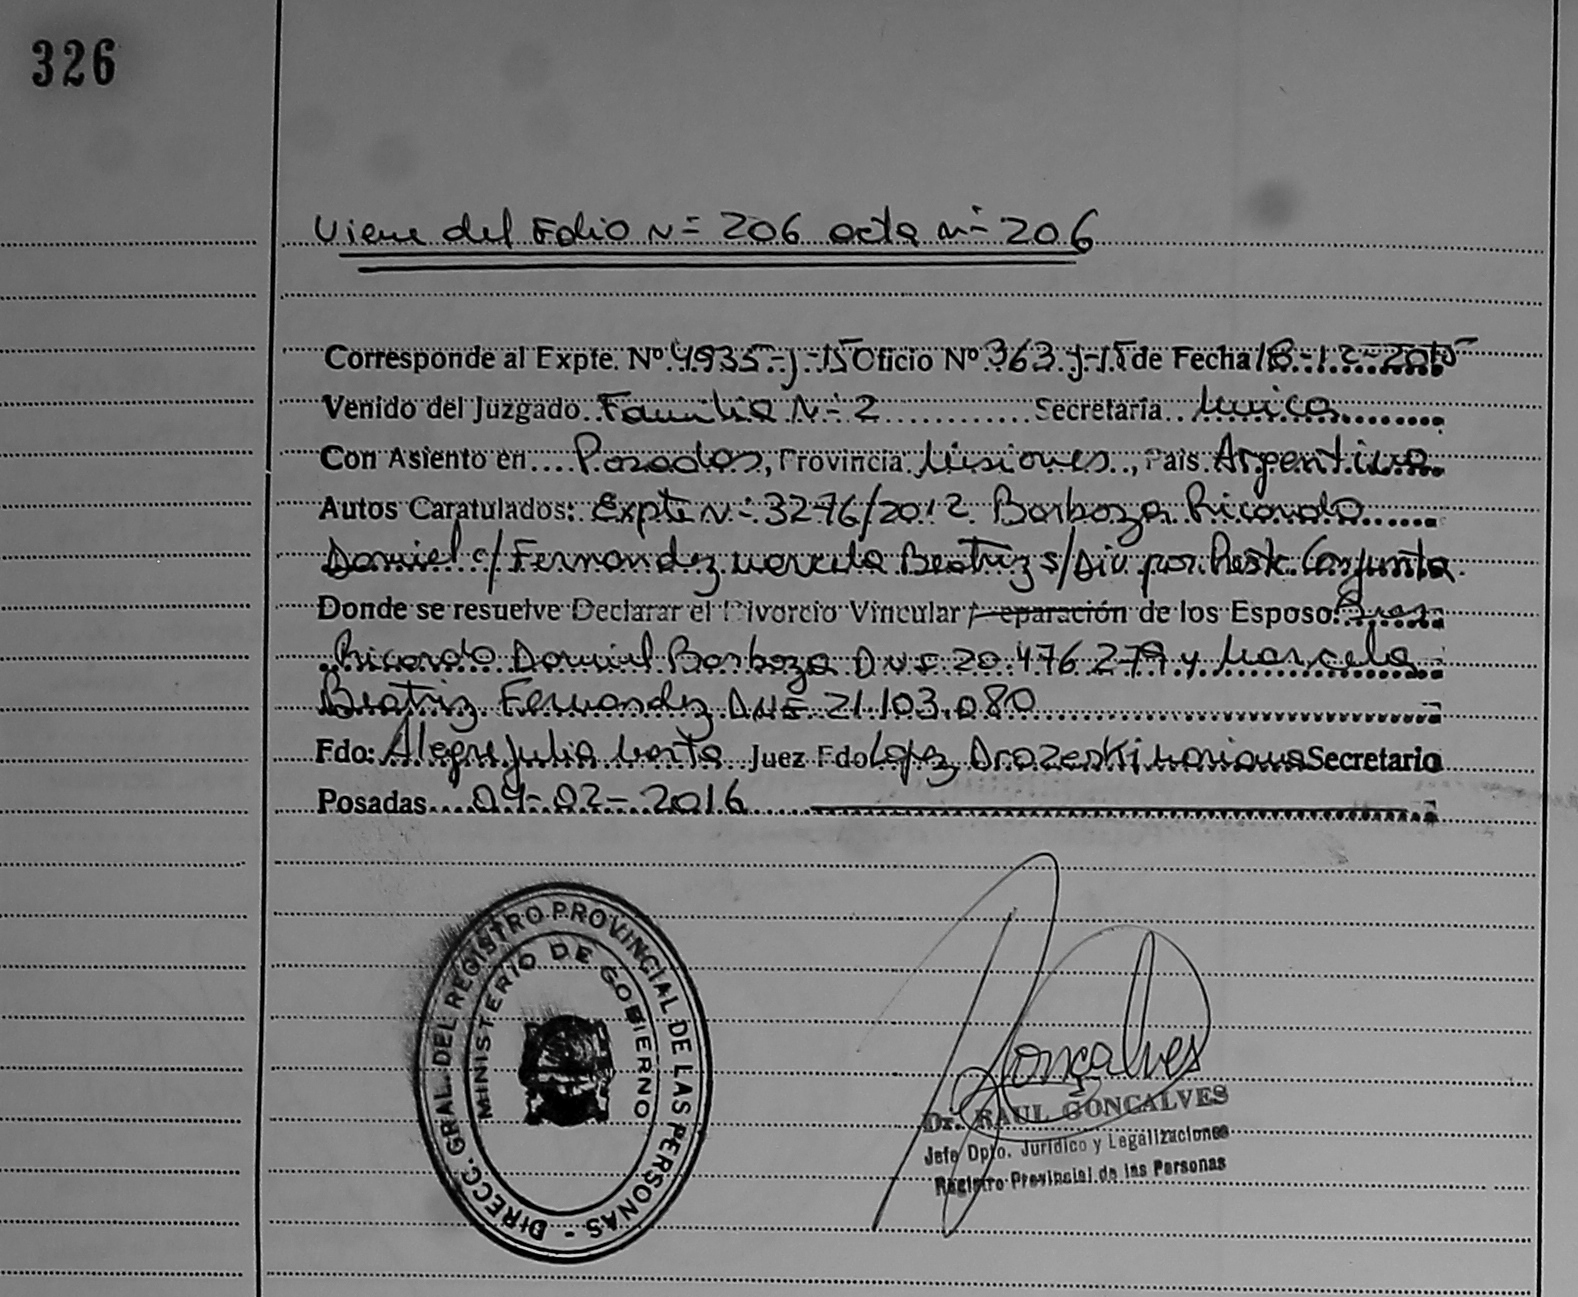 326
Viene del Folio N= 206 acta n= 206
Corresponde al Expte. Nº 4935-J-15 Oficio Nº 363-J-15 de Fecha 18-12-2015
Venido del Juzgado Familia N=2 Secretaria Unica
Con Asiento en Posadas, Provincia Misiones, Pais Argentina
Autos Caratulados: Expte N= 3276/2012 Barboza Ricardo
Daniel c/ Fernandez Marcela Beatriz s/ Div. por Pres. Conjunta
Donde se resuelve Declarar el Divorcio Vincular / eparación de los Esposo: Sres
Ricardo Daniel Barboza DNI= 20.476.279 y Marcela
Beatriz Fernandez DNI= 21.103.080
Fdo: Alegre Julia Marta Juez Fdo Lopez Drazeski Mariana Secretario
Posadas 04-02-2016
DIRECC. GRAL. DEL REGISTRO PROVINCIAL DE LAS PERSONAS -
MINISTERIO DE GOBIERNO
Gonçalves
Dr. RAUL GONCALVES
Jefe Dpto. Jurídico y Legalizaciones
Registro Provincial de las Personas